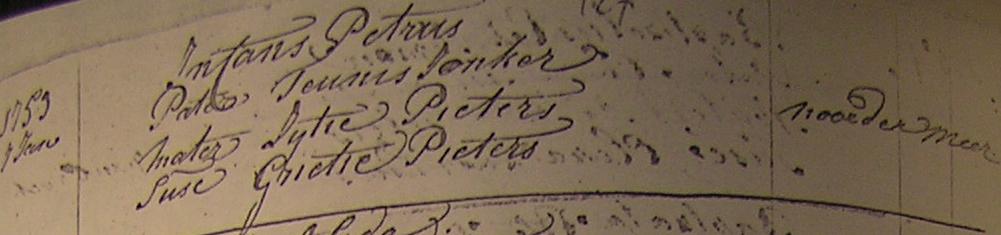 1753
Infans Petrus
Pater Teunis Jonker
mater Sytie Pieters
Susc Grietie Pieters
noorder meer